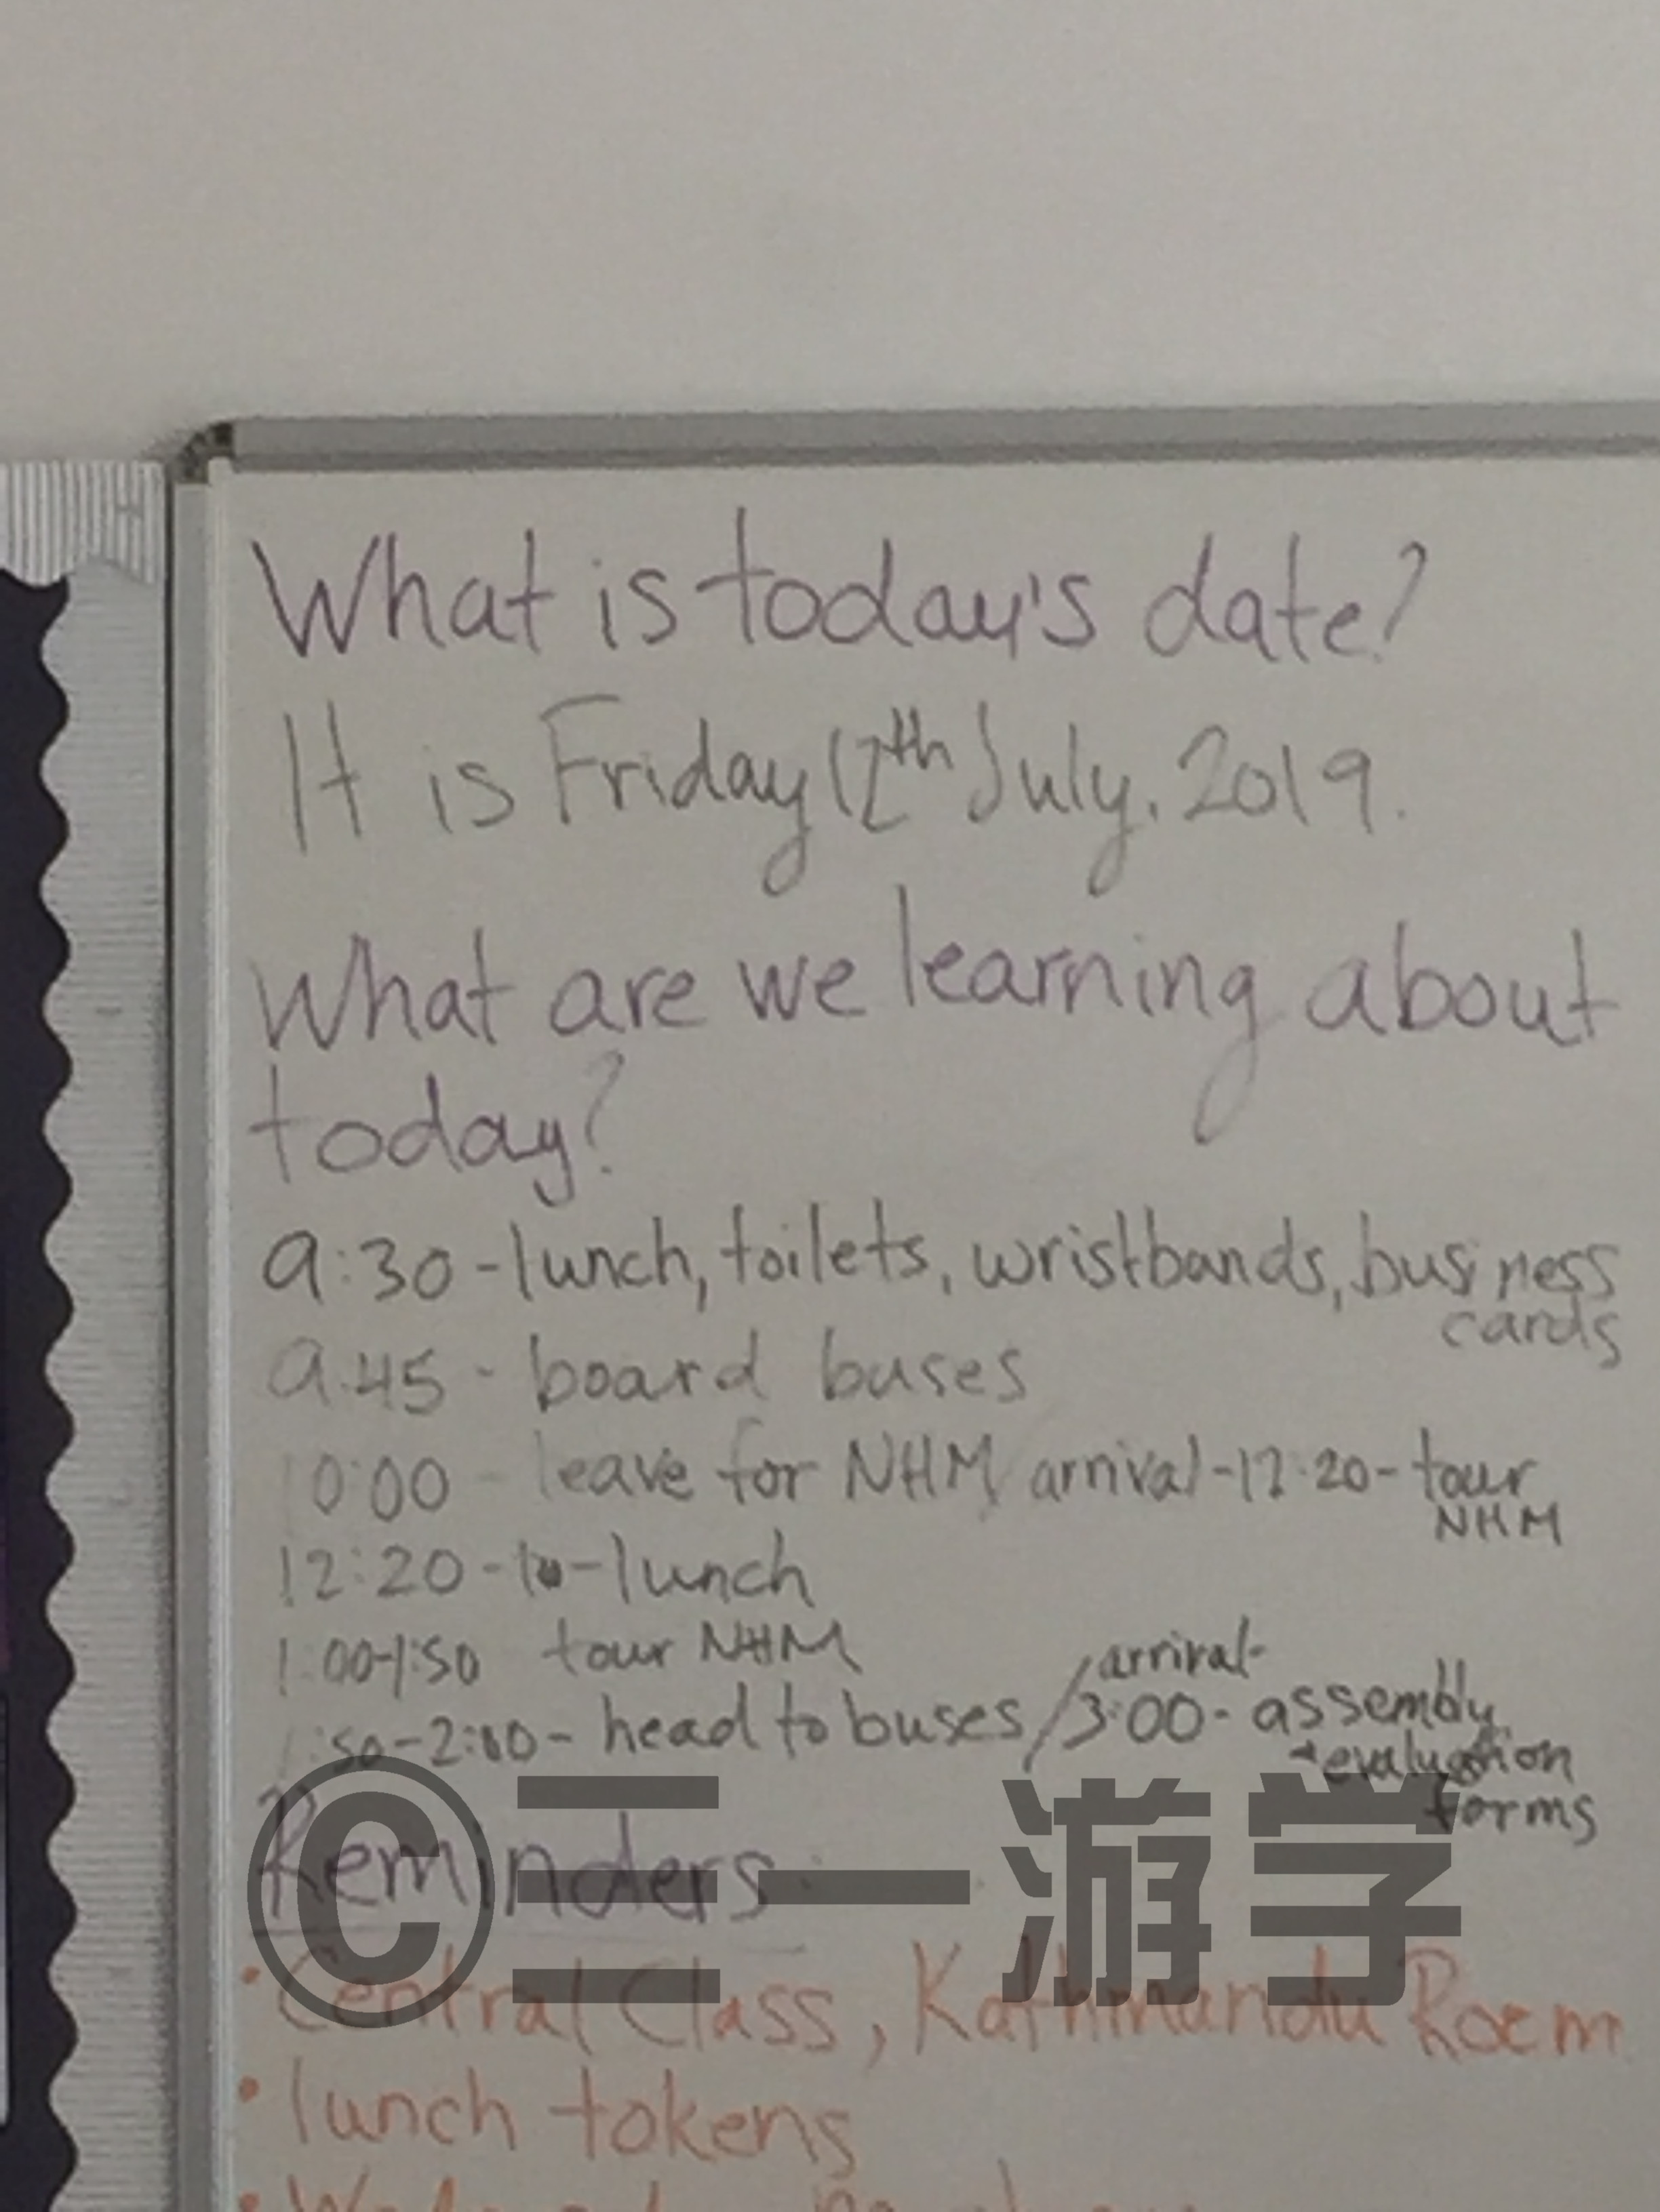 What is today's date?
It is Friday 12th July, 2019.
What are we learning about
today?
9:30 - lunch, toilets, wristbands, business
cards
9:45 - board buses
10:00 - leave for NHM / arrival - 12:20 - tour
NHM
12:20 - lunch
1:00-1:50 tour NHM
1:50-2:00 - head to buses / arrival-
3:00 - assembly
+ evaluation
forms
Reminders:
© 三一游学
• Central Class, Kathmandu Room
• lunch tokens